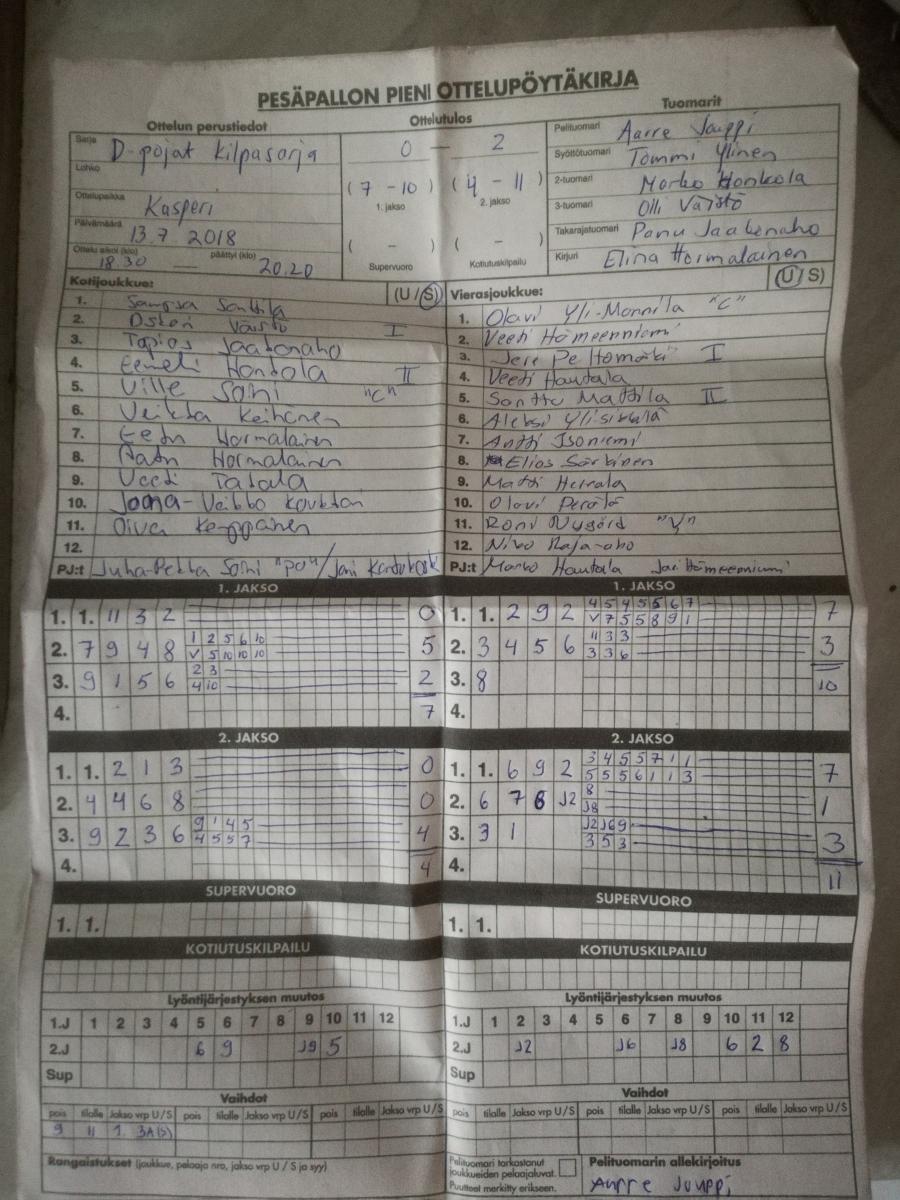 PESÄPALLON PIENI OTTELUPÖYTÄKIRJA
Ottelun perustiedot
Ottelutulos
Tuomarit
Sarja D-pojat kilpasarja
Lohko
Ottelupaikka Kasperi
Päivämäärä 13.7 2018
Ottelu alkoi (klo) 18.30 — päättyi (klo) 20.20
0 — 2
(7 - 10) (4 - 11)
1. jakso 2. jakso
( - ) ( - )
Supervuoro Kotiutuskilpailu
Pelituomari Aarre Jouppi
Syöttötuomari Tommi Ylinen
2-tuomari Marko Honkola
3-tuomari Olli Väistö
Takarajatuomari Panu Jaakonaho
Kirjuri Elina Hormalainen
Kotijoukkue: (U/S)
1. Santtila
2. Väistö I
3. Tapios Jaakonaho
4. Eemeli Honkola II
5. Ville Soini "C"
6. Veikka Keihänen
7. Eetu Hormalainen
8. Aatu Hormalainen
9. Veeti Tasala
10. Joona-Veikko
11. Oiva Kemppainen
12.
PJ:t Juha-Pekka Soini "PU" / Jani
Vierasjoukkue: (U/S)
1. Olavi Yli-Mannila "C"
2. Veeti Hämeenniemi
3. Jere Peltomäki I
4. Veeti Hautala
5. Santtu Mattila II
6. Aleksi Ylisikkilä
7. Antti Isoniemi
8. Elias Särkinen
9. Matti Herrala
10. Olavi Perälä
11. Roni Nygård "V"
12. Niko Raja-aho
PJ:t Marko Hautala Jari Hämeenniemi
1. JAKSO
1. 1. 11 3 2 0
2. 7 9 4 8 1 2 5 6 10 5
V 5 10 10 10
3. 9 1 5 6 2 3 2
4 10
4. 7
1. JAKSO
1. 1. 2 9 2 4 5 4 5 5 6 7 7
V 7 5 5 8 9 1
2. 3 4 5 6 11 3 3 3
3 3 6
3. 8 10
4.
2. JAKSO
1. 1. 2 1 3 0
2. 4 4 6 8 0
3. 9 2 3 6 9 1 4 5 4
4 5 5 7
4. 4
2. JAKSO
1. 1. 6 9 2 3 4 5 5 7 1 1 7
5 5 5 6 1 1 3
2. 6 7 8 J2 8 1
J8
3. 3 1 J2 J6 9 3
3 5 3
4. 11
SUPERVUORO
1. 1.
SUPERVUORO
1. 1.
KOTIUTUSKILPAILU
KOTIUTUSKILPAILU
Lyöntijärjestyksen muutos
1.J 1 2 3 4 5 6 7 8 9 10 11 12
2.J 6 9 J9 5
Sup
Lyöntijärjestyksen muutos
1.J 1 2 3 4 5 6 7 8 9 10 11 12
2.J J2 J6 J8 6 2 8
Sup
Vaihdot
pois tilalle Jakso vrp U/S pois tilalle Jakso vrp U/S pois tilalle Jakso vrp U/S
9 11 1. 3A(S)
Vaihdot
pois tilalle Jakso vrp U/S pois tilalle Jakso vrp U/S pois tilalle Jakso vrp U/S
Rangaistukset (joukkue, pelaaja nro, jakso vrp U / S ja syy)
Pelituomari tarkastanut
joukkueiden pelaajaluvat.
Puutteet merkitty erikseen.
Pelituomarin allekirjoitus
Aarre Jouppi